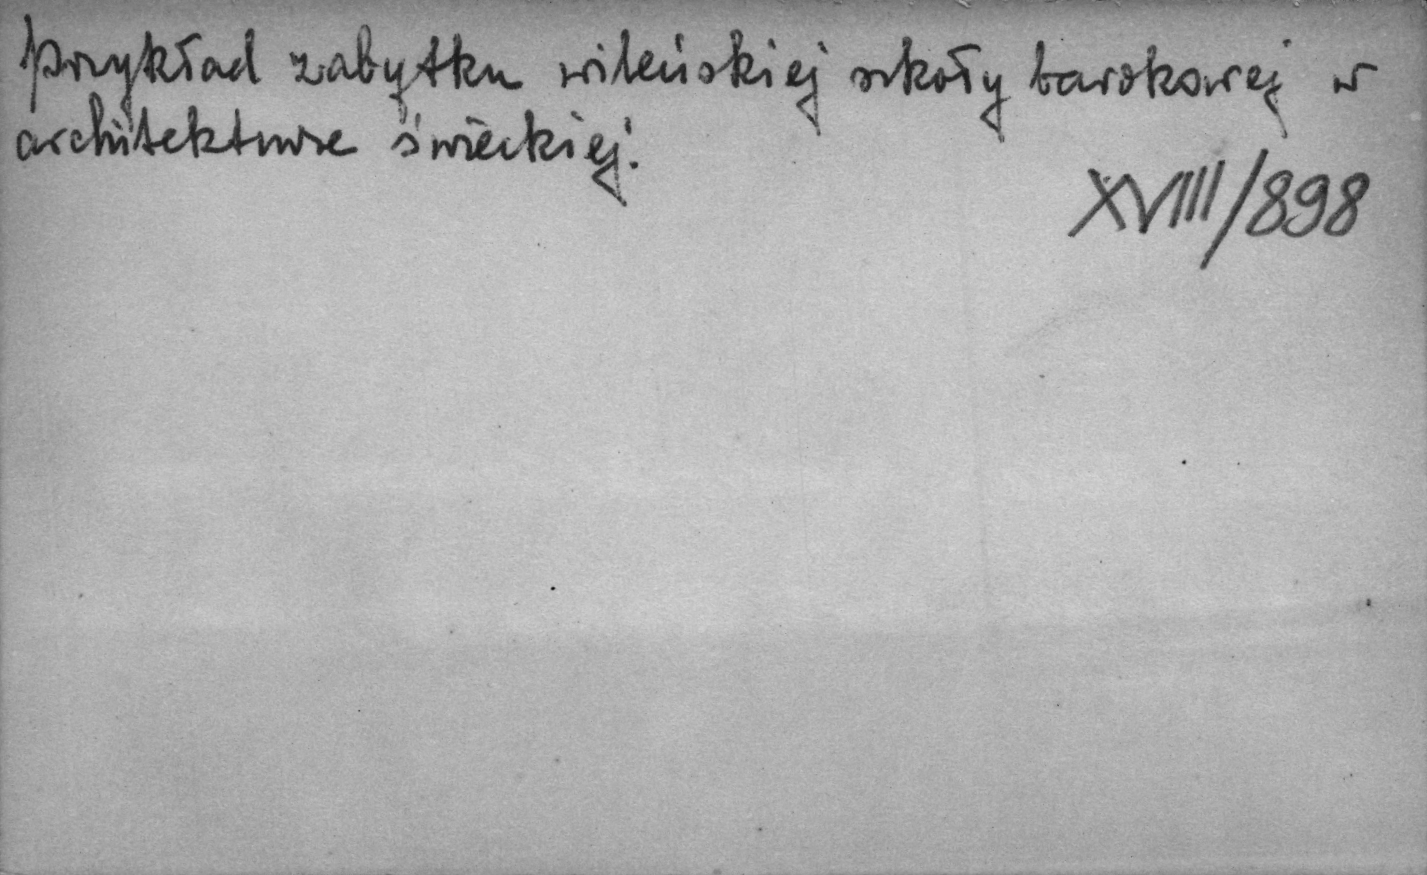 Przykład zabytku wileńskiej szkoły barokowej w
architekturze świeckiej.
XVIII/898